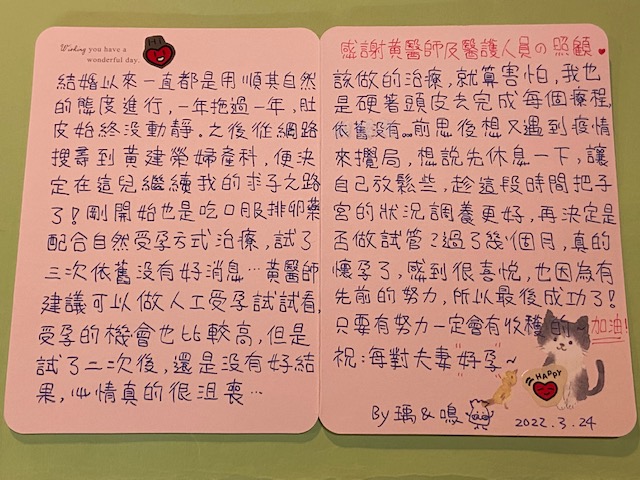 Wishing you have a
wonderful day.
Hi
結婚以來一直都是用順其自然
的態度進行,一年拖過一年,肚
皮始終沒動靜。之後從網路
搜尋到黃建榮婦產科,便決
定在這兒繼續我的求子之路
了!剛開始也是吃口服排卵藥
配合自然受孕方式治療,試了
三次依舊沒有好消息…黃醫師
建議可以做人工受孕試試看,
受孕的機會也比較高,但是
試了二次後,還是沒有好結
果,心情真的很沮喪…
感謝黃醫師及醫護人員の照顧
該做的治療,就算害怕,我也
是硬著頭皮去完成每個療程,
依舊沒有…前思後想又遇到疫情
來攪局,想說先休息一下,讓
自己放鬆些,趁這段時間把子
宮的狀況調養更好,再決定是
否做試管?過了幾個月,真的
懷孕了,感到很喜悅,也因為有
先前的努力,所以最後成功了!
只要有努力一定會有收穫的~加油!
祝:每對夫妻"好孕"~
HAPPY
By 瑀&鳴
2022.3.24